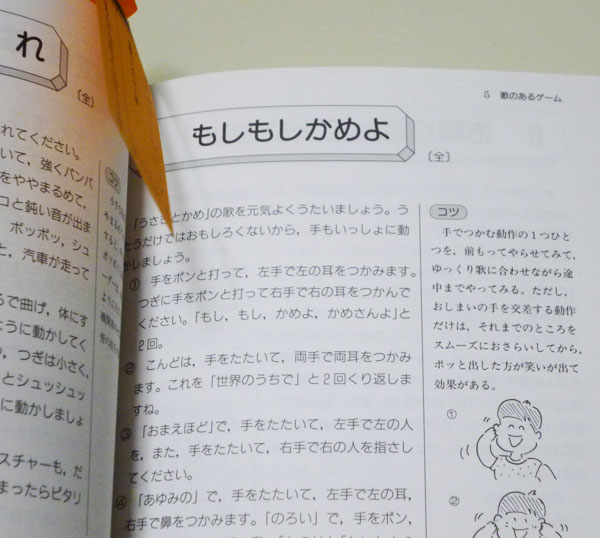 れ
〔全〕
れてください。
いて，強くバンバ
をややまるめて，
コと鈍い音が出ま
ポッポッ，シュ
と，汽車が走って
ろで曲げ，体にす
ように動かしてく
，つぎは小さく，
とシュッシュッ
に動かしましょ
スチャーも，だ
まったらピタリ
コツ
5 歌のあるゲーム
もしもしかめよ
〔全〕
「うさぎとかめ」の歌を元気よくうたいましょう。う
たうだけではおもしろくないから，手もいっしょに動
かしましょう。
① 手をポンと打って，左手で左の耳をつかみます。
つぎに手をポンと打って右手で右の耳をつかんで
ください。「もし，もし，かめよ，かめさんよ」と
2回。
② こんどは，手をたたいて，両手で両耳をつかみ
ます。これを「世界のうちで」と2回くり返しま
すね。
③ 「おまえほど」で，手をたたいて，左手で左の人
を，また，手をたたいて，右手で右の人を指さし
てください。
④ 「あゆみの」で，手をたたいて，左手で左の耳，
右手で鼻をつかみます。「のろい」で，手をポン，
コツ
手でつかむ動作の1つひと
つを，前もってやらせてみて，
ゆっくり歌に合わせながら途
中までやってみる。ただし，
おしまいの手を交差する動作
だけは，それまでのところを
スムーズにおさらいしてから，
ポッと出した方が笑いが出て
効果がある。
①
②